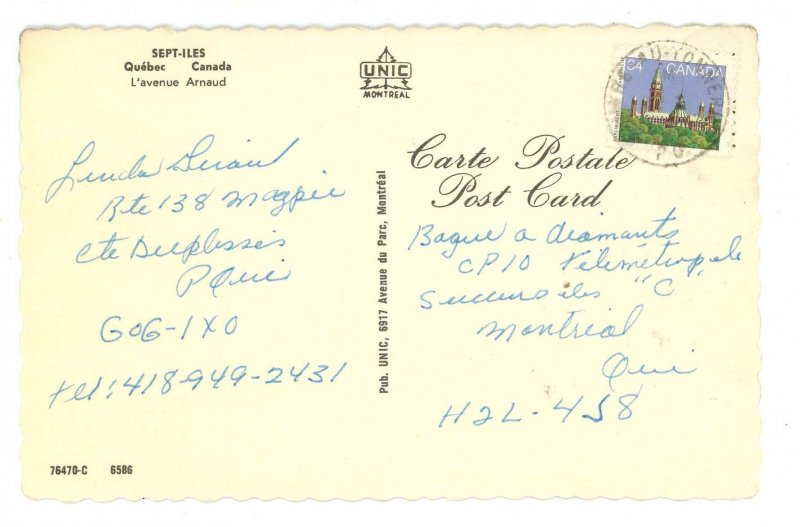 SEPT-ILES
Québec Canada
L'avenue Arnaud
UNIC
MONTREAL
34 CANADA
Carte Postale
Post Card
Linda Giraud
Rte 138 Magpie
Cte Duplessis
P Qui
G0G-1X0
tel: 418-949-2431
Pub. UNIC, 6917 Avenue du Parc, Montréal
Bague a diamants
CP10 Télémétropole
Succursales "C"
Montréal
Qui
H2L-4J8
76470-C 6586